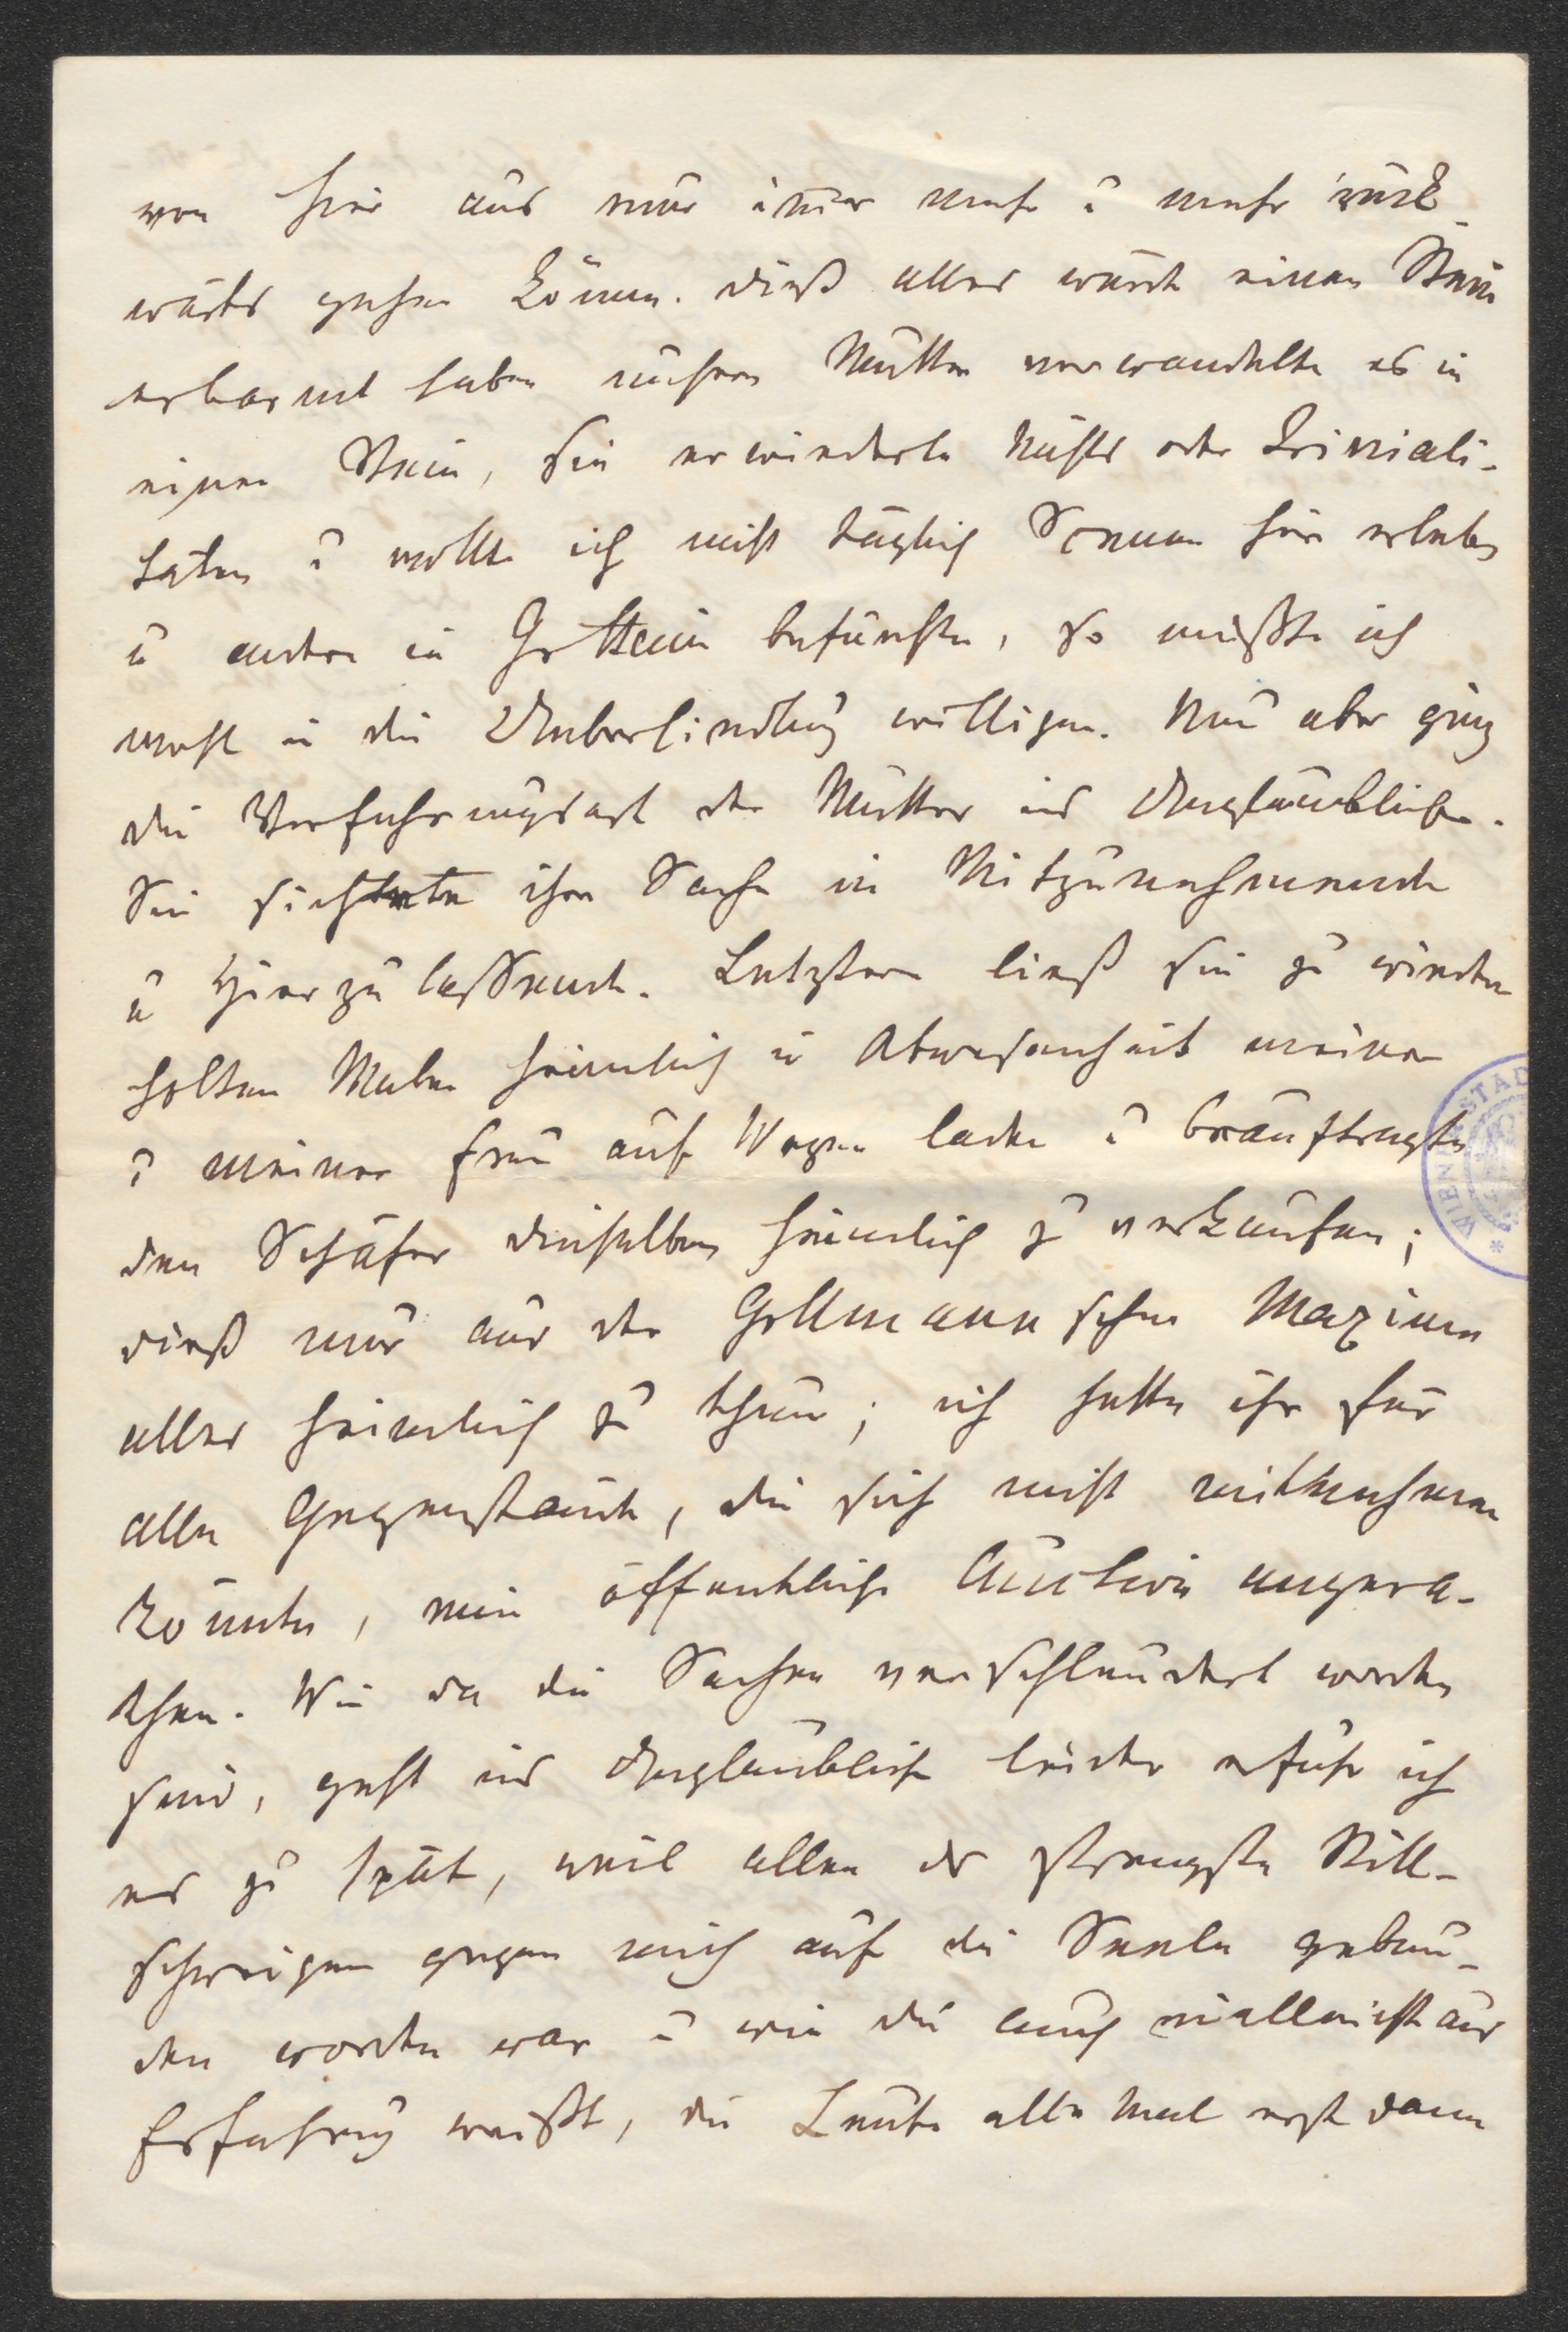 von hier aus nur im̄er mehr u mehr rück-
wärts gehen könne. dieß alles würde einen Stein
erbarmt haben unsere Mutter verwandelte es in
einen Stein, sie erwiederte nichts oder Triviali-
täten u wollte ich nicht täglich Scenen hier erleben
u andere in Gottem befürchten, so mußte ich
wohl in die Übersiedlung willigen. Nun aber ging
die Verfahrungsart der Mutter ins Unglaubliche.
Sie sichtete ihre Sache in Mitzunehmende
u Hierzulassende. Letztere ließ sie zu wieder
holten Malen heimlich in Abwesenheit meiner
u meiner Frau auf Wagen laden u beauftragte
den Schäfer dieselben heimlich zu verkaufen;
dieß nur aus der Gollmannschen Maxime
alles heimlich zu thun; ich hatte ihr für
alle Gegenstände, die sich nicht mitnehmen
könnte, eine öffentliche Auction angera-
then. Wie da die Sachen verschleudert worden
sind, geht ins Unglaubliche leider erfuhr ich
es zu spät, weil allen das strengste Still-
schweigen gegen mich auf die Seele gebun-
den worden war u wie du auch vielleicht aus
Erfahrung weißt, die Leute alle Mal erst dann
WIENER STAD